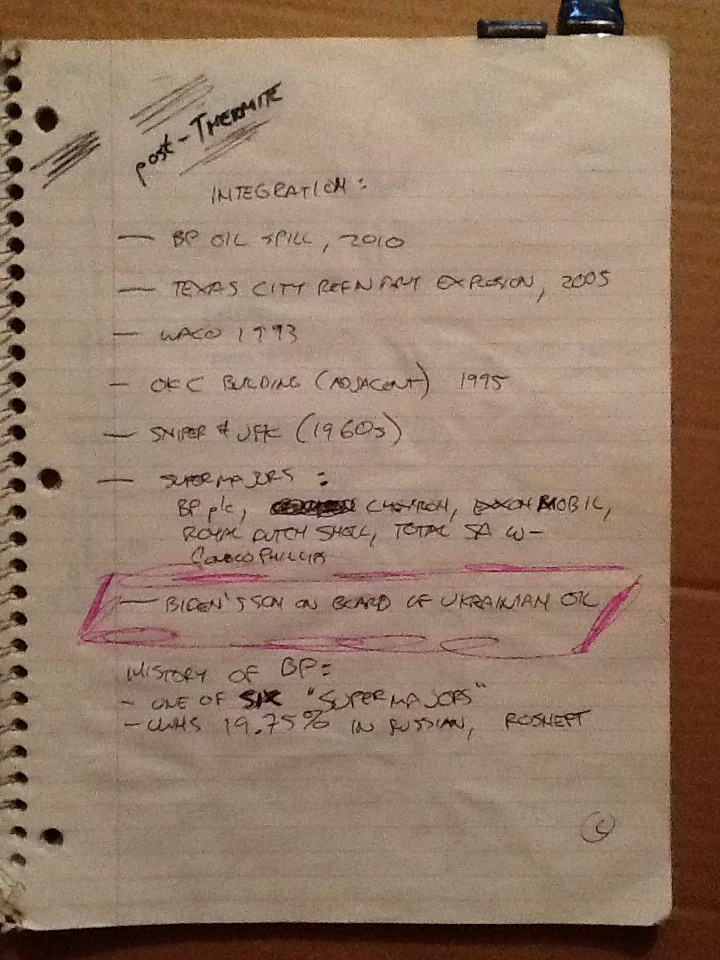 post-THERMITE
INTEGRATION:
— BP OIL SPILL, 2010
— TEXAS CITY REFINARY EXPLOSION, 2005
— WACO 1993
— OKC BUILDING (ADJACENT) 1995
— SNIPER & JFK (1960s)
— SUPERMAJORS:
BP plc, CHEVRON, EXXON MOBIL,
ROYAL DUTCH SHELL, TOTAL SA W-
CONOCOPHILLIPS
— BIDEN'S SON ON BOARD OF UKRAINIAN OIL
HISTORY OF BP:
- ONE OF SIX "SUPERMAJORS"
- OWNS 19.75% IN RUSSIAN, ROSNEFT